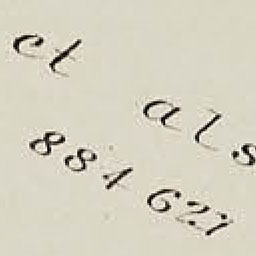 et als
884 627